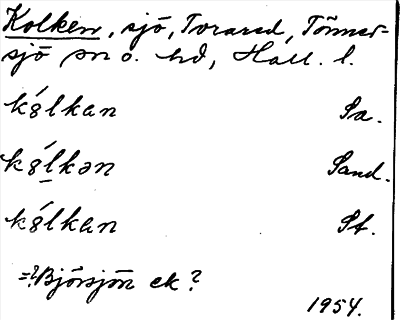 Kolken, sjö, Torared, Tönner-
sjö sn o. hd, Hall. l.
kȣ́lkan Sa.
kȣ́l̲kən Sand.
kȣ́lkan St.
=? Björsjön ek?
1954.